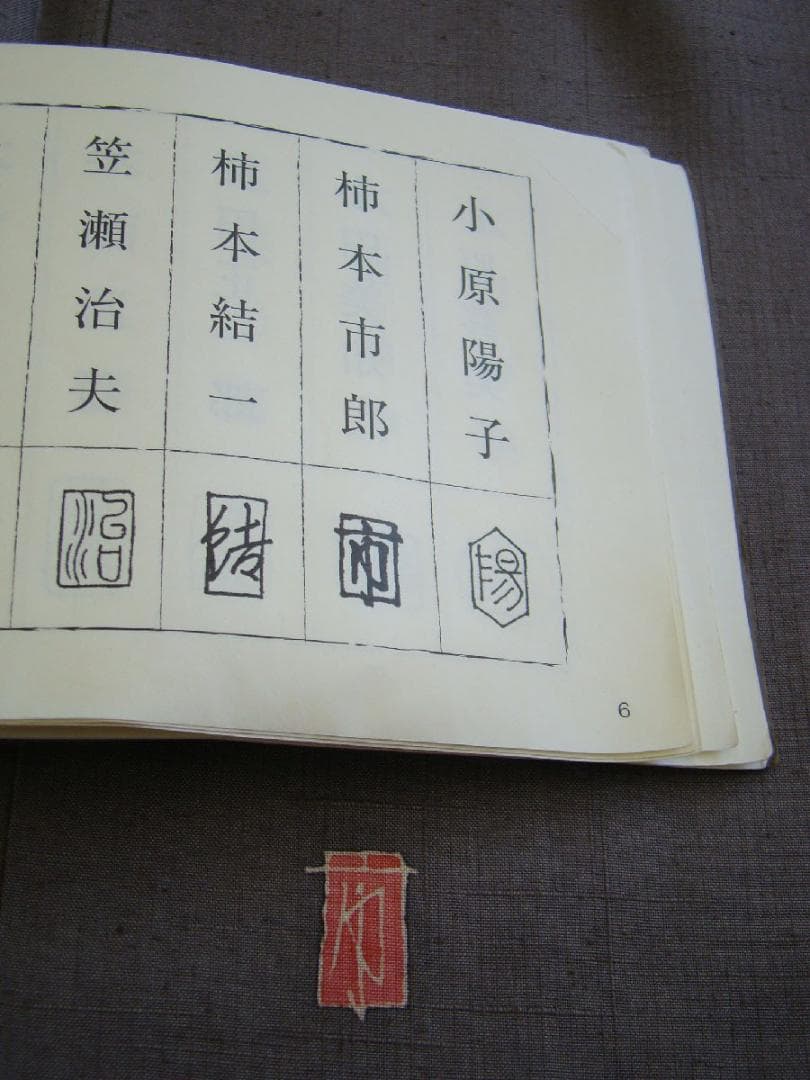 小原陽子
柿本市郎
柿本結一
笠瀬治夫
陽
市
結
治
6